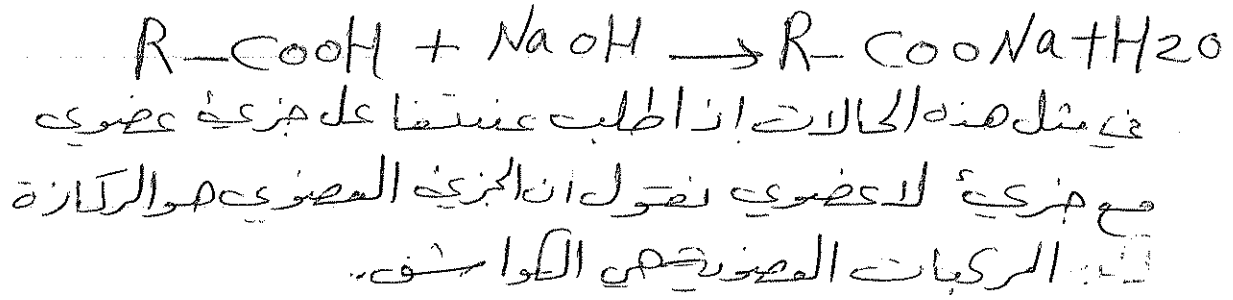 R-COOH + NaOH → R-COONa+H2O
في مثل هذه الحالات اذا طلب عند تفاعل جزيئ عضوي
مع جزيئ لا عضوي نقول ان الجزيئ العضوي هو الركازة
المركبات العضوية هي الكواشف..